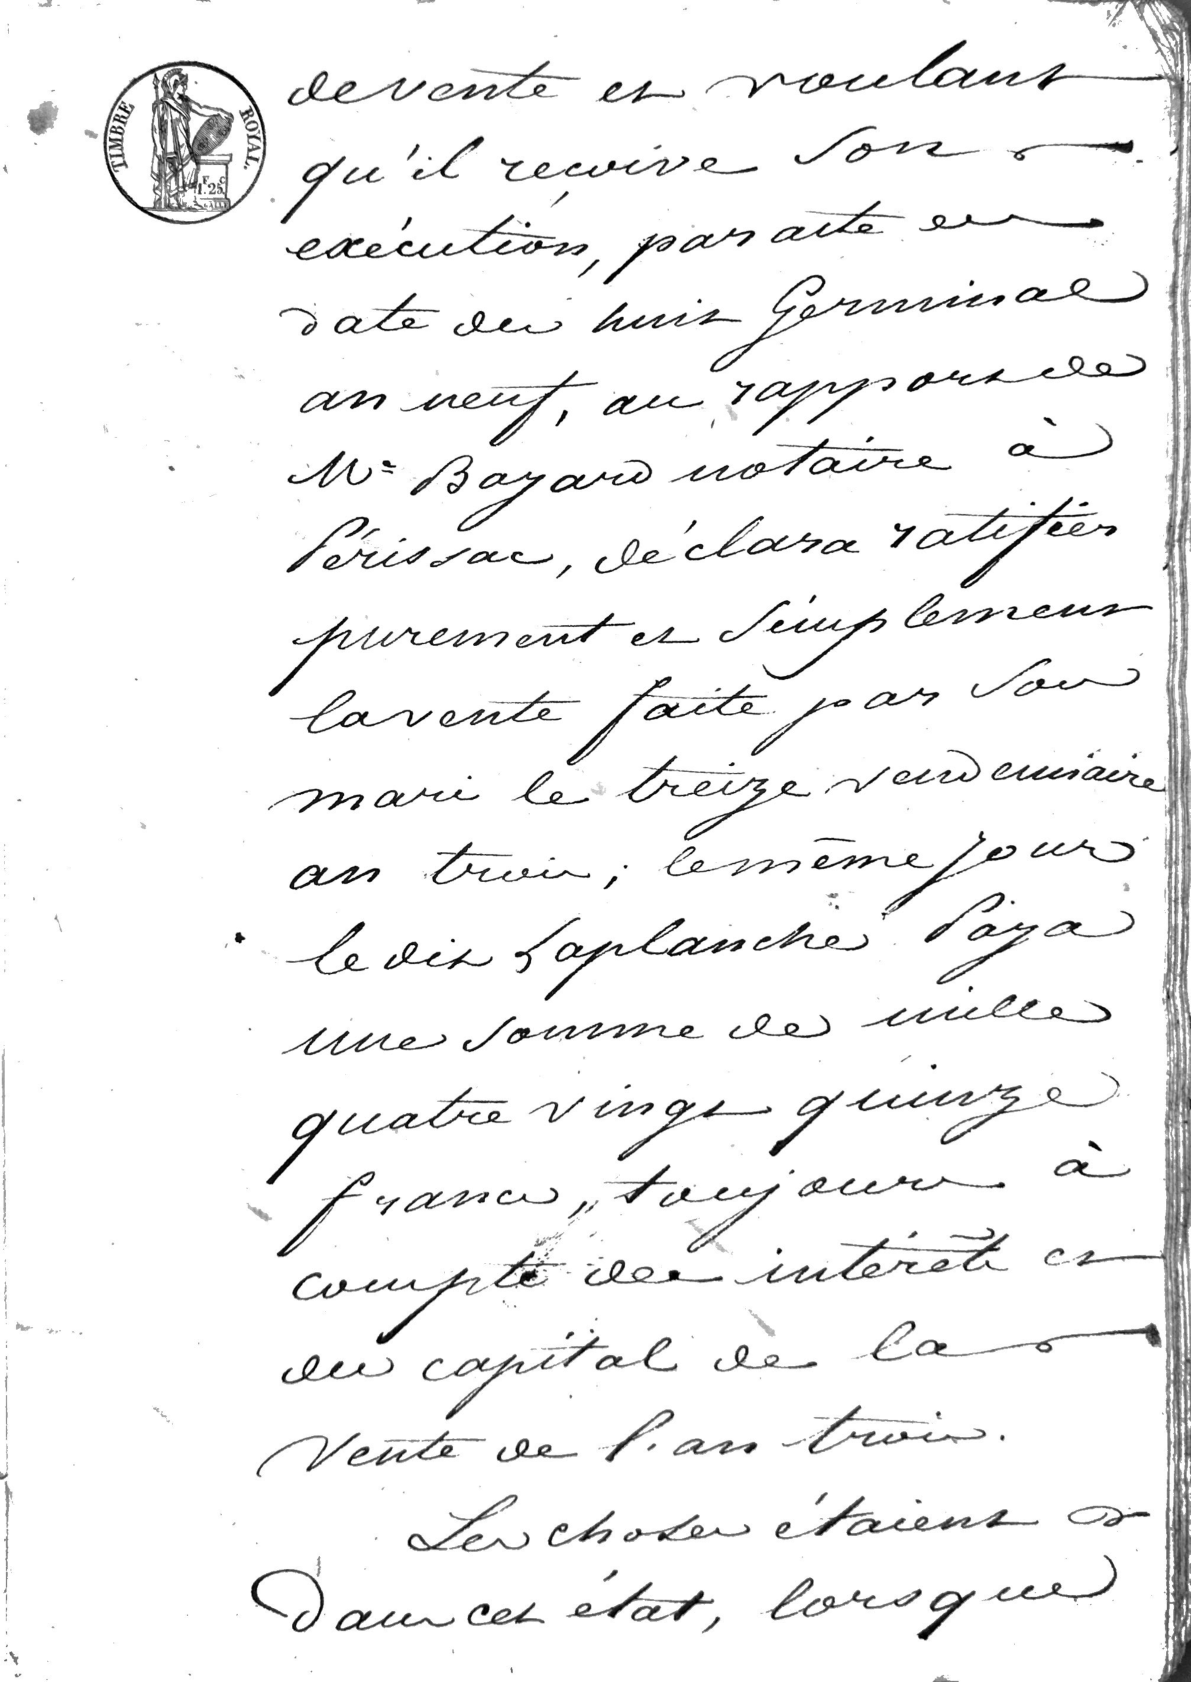 TIMBRE ROYAL.
1F. 25C
de vente et voulant
qu'il reçoive son
exécution, par acte en
date du huit Germinal
an neuf, au rapport de
Me Bayard notaire à
Périssac, déclara ratifier
purement et simplement
la vente faite par son
mari le treize vendemiaire
an trois; le même jour
le dit Laplanche Paya
une somme de mille
quatre vingt quinze
francs, toujours à
compte des intérêts et
du capital de la
vente de l'an trois.
Les choses étaient
dans cet état, lorsque